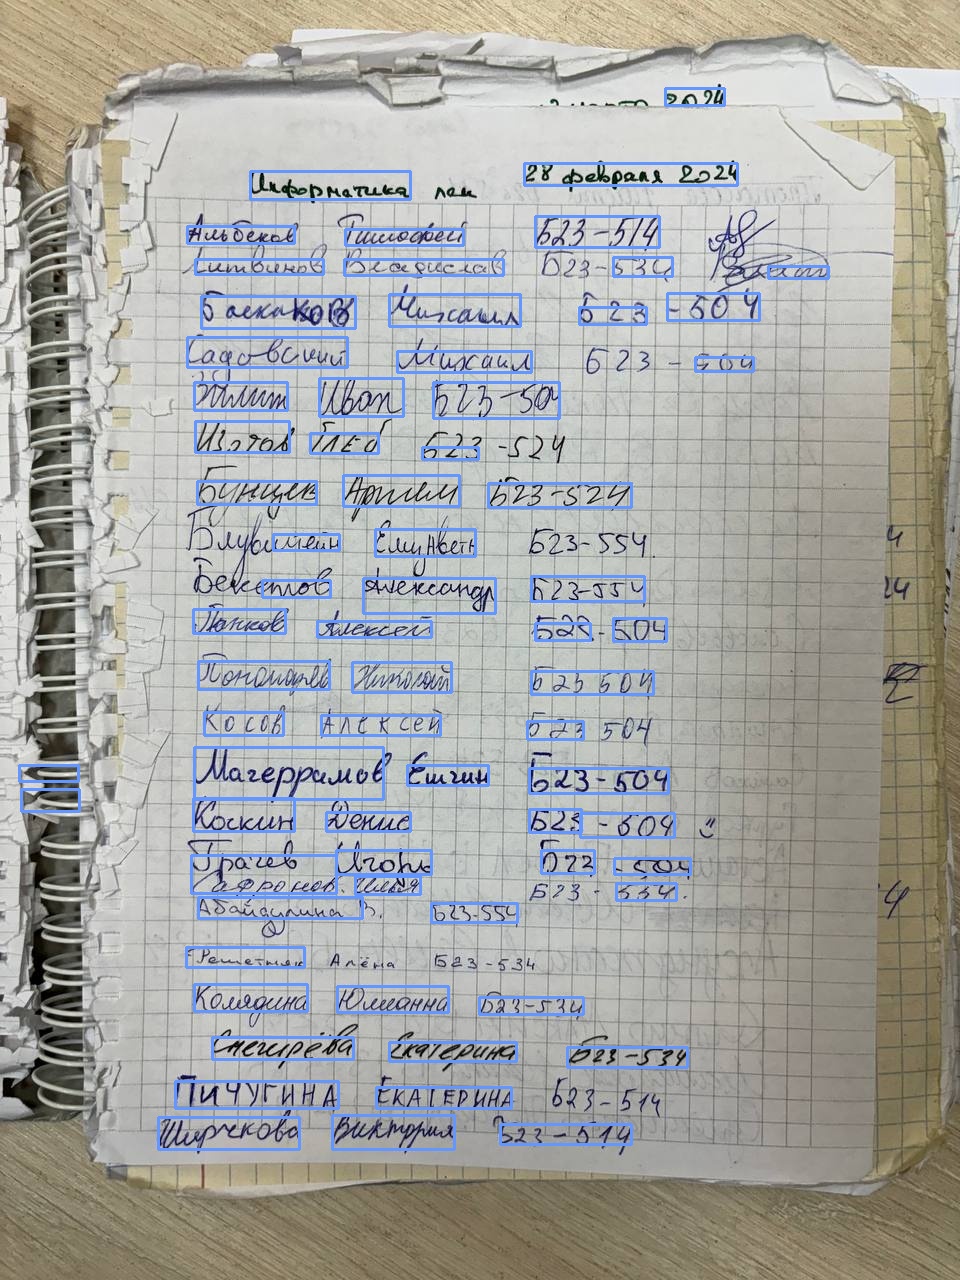 2024
Информатика лек 28 февраля 2024
Альбеков Тимофей Б23-514
Литвинов Владислав Б23-534
Баскаков Михаил Б23-504
Садовский Михаил Б23-504
Иван Б23-504
Изотов Глеб Б23-524
Бунщек Артем Б23-524
Блувштейн Елизавета Б23-554.
Бекетов Александр Б23-554
Панков Алексей Б23-504
Пономарев Николай Б23 504
Косов Алексей Б23 504
Магеррамов Ешгин Б23-504
Коскин Денис Б23-504
Грачев Игорь Б23-504
Сафронов. Илья Б23-534.
Абайдулина В. Б23-554
Решетняк Алёна Б23-534
Колядина Юлианна Б23-534
Снегирёва Екатерина Б23-534
ПИЧУГИНА ЕКАТЕРИНА Б23-514
Ширчкова Виктория Б23-514